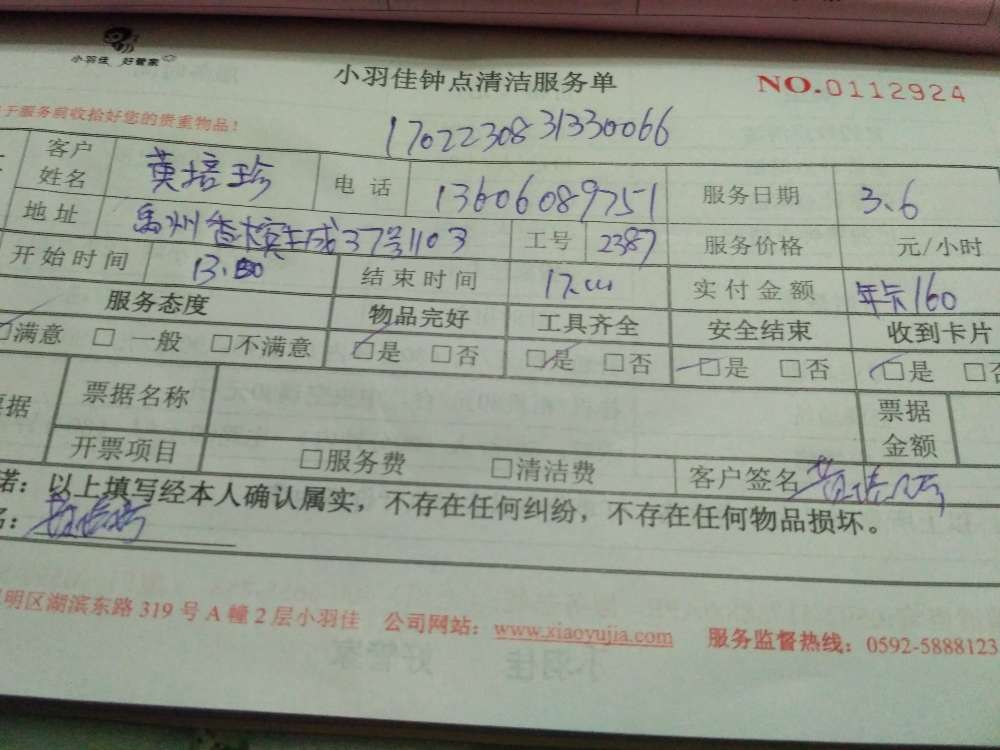 小羽佳 好管家
小羽佳钟点清洁服务单
NO.0112924
于服务前收拾好您的贵重物品！
17022308331330066
客户姓名 黄培珍 电话 13606089751 服务日期 3.6
地址 禹州香槟生成37号1103 工号 2387 服务价格 元/小时
开始时间 13.00 结束时间 17.00 实付金额 年卡160
服务态度 物品完好 工具齐全 安全结束 收到卡片
□满意 □一般 □不满意 □是 □否 □是 □否 □是 □否 □是 □否
票据 票据名称 票据金额
开票项目 □服务费 □清洁费 客户签名 黄培珍
诺：以上填写经本人确认属实，不存在任何纠纷，不存在任何物品损坏。
名：黄培珍
明区湖滨东路319号A幢2层小羽佳 公司网站：www.xiaoyujia.com 服务监督热线：0592-5888123